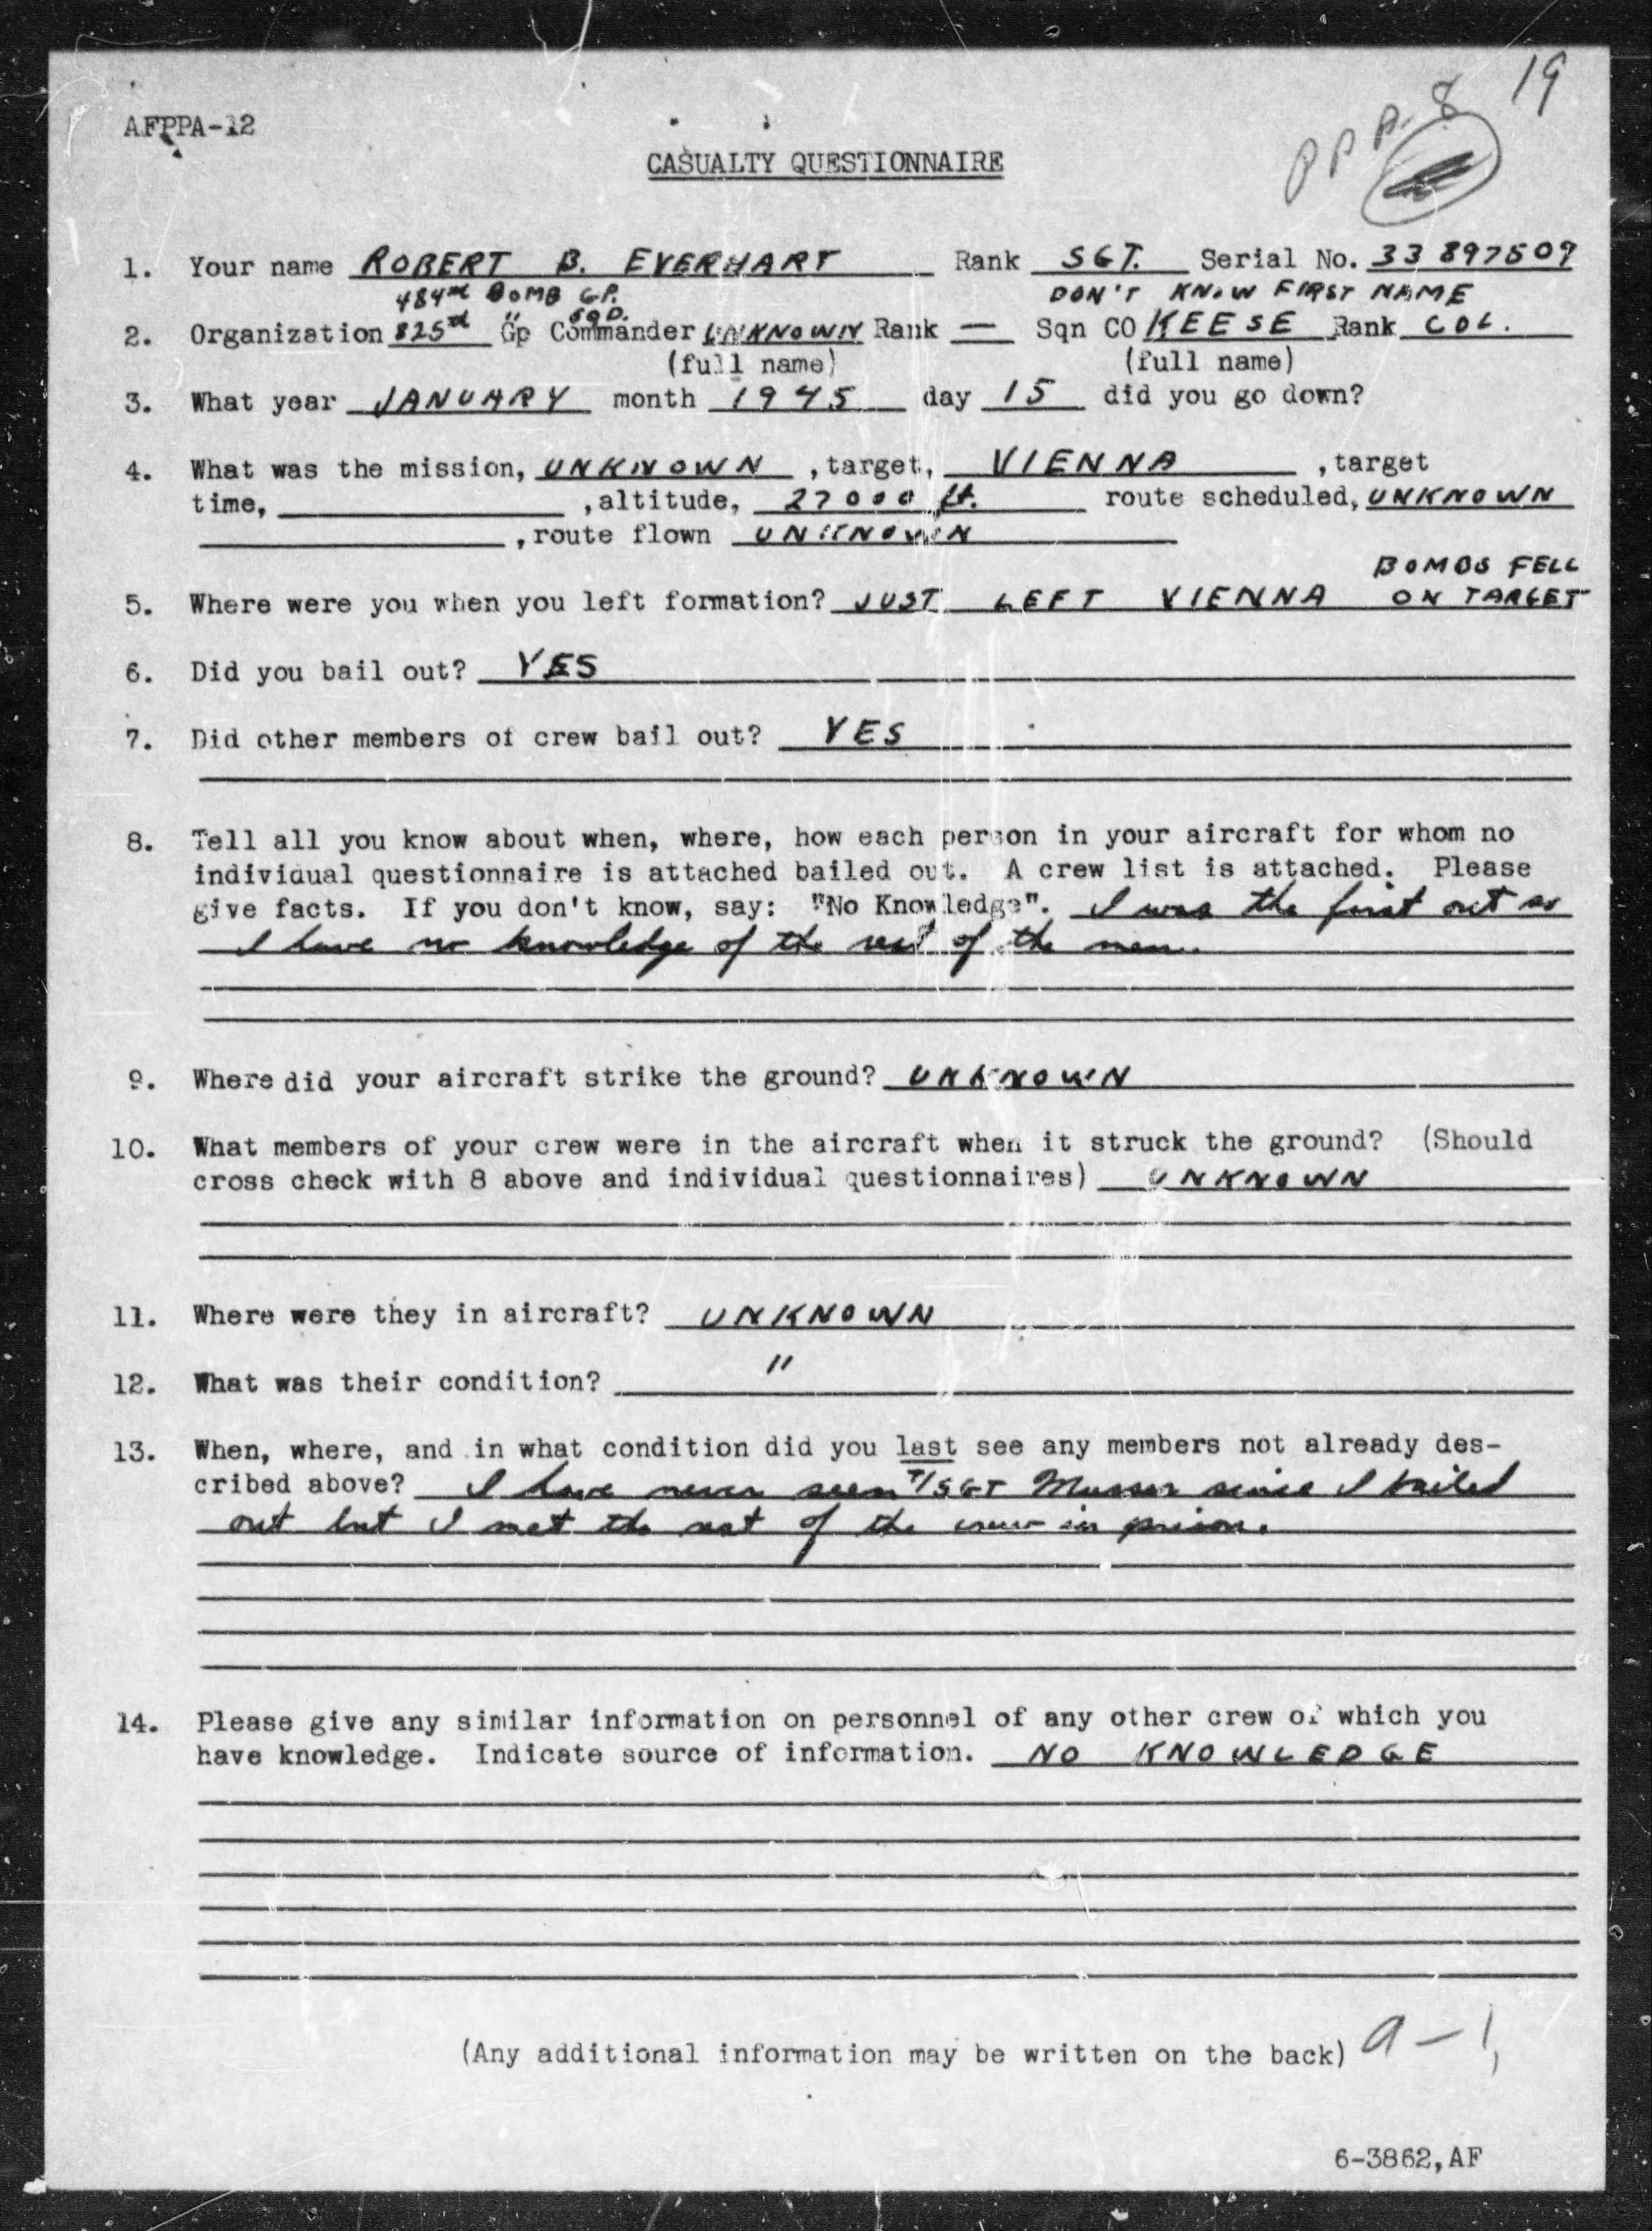 19
PPA-8
AFPPA-12
CASUALTY QUESTIONNAIRE
1. Your name ROBERT B. EVERHART Rank SGT. Serial No. 33 897509
484TH BOMB GP. DON'T KNOW FIRST NAME
SQD.
2. Organization 825th " Gp Commander UNKNOWN Rank — Sqn CO KEESE Rank COL.
(full name) (full name)
3. What year JANUARY month 1945 day 15 did you go down?
4. What was the mission, UNKNOWN , target, VIENNA , target
time, , altitude, 27000 ft. route scheduled, UNKNOWN
, route flown UNKNOWN
BOMBS FELL
5. Where were you when you left formation? JUST LEFT VIENNA ON TARGET
6. Did you bail out? YES
7. Did other members of crew bail out? YES
8. Tell all you know about when, where, how each person in your aircraft for whom no
individual questionnaire is attached bailed out. A crew list is attached. Please
give facts. If you don't know, say: "No Knowledge". I was the first out so
I have no knowledge of the rest of the men.
9. Where did your aircraft strike the ground? UNKNOWN
10. What members of your crew were in the aircraft when it struck the ground? (Should
cross check with 8 above and individual questionnaires) UNKNOWN
11. Where were they in aircraft? UNKNOWN
12. What was their condition? "
13. When, where, and in what condition did you last see any members not already des-
cribed above? I have never seen T/SGT Musser since I bailed
out but I met the rest of the crew in prison.
14. Please give any similar information on personnel of any other crew of which you
have knowledge. Indicate source of information. NO KNOWLEDGE
(Any additional information may be written on the back) a-1,
6-3862,AF